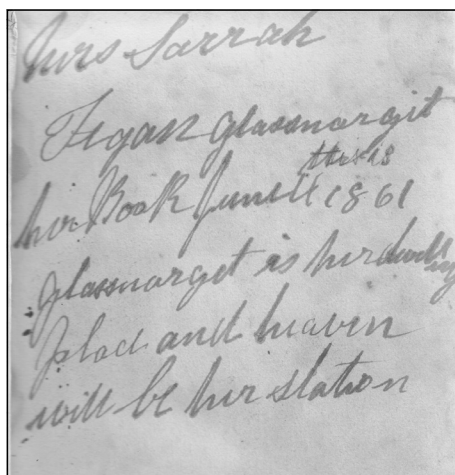 Mrs Sarrah
Fegan Glassnargit
this is
her Book June 11 1861
glassnarget is her dwelling
place and heaven
will be her station